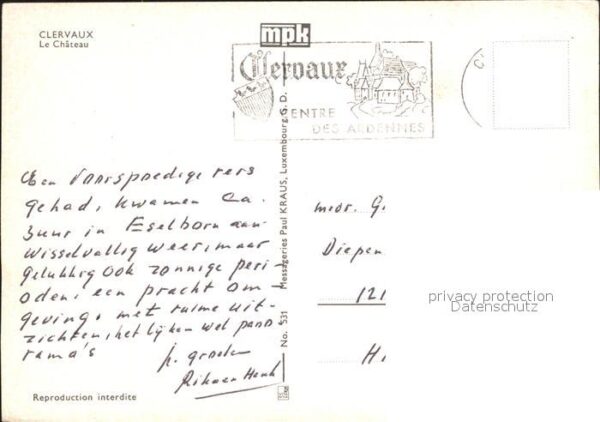 CLERVAUX
Le Château
mpk
Clervaux
CENTRE
DES ARDENNES
Een voorspoedige reis
gehad, kwamen ca.
uur in Eselborn aan.
Wisselvallig weer, maar
gelukkig ook zonnige peri-
oden; een pracht om-
geving, met ruime uit-
zichten, het lijken wel pano
rama's
h. groeten
Rik en Henk
Reproduction interdite
No. 531 Messageries Paul KRAUS, Luxembourg G. D.
mevr. G.
Diepen
121
H.
privacy protection
Datenschutz